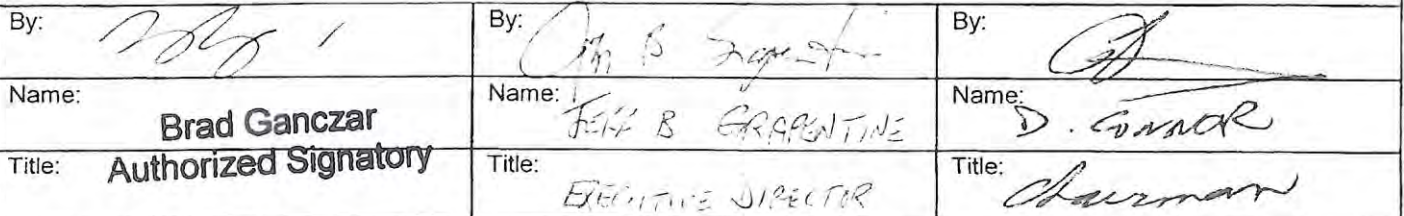 By:
By:
By:
Name: Brad Ganczar
Name: JEFF B GRAPENTINE
Name: D. CONNOR
Title: Authorized Signatory
Title: EXECUTIVE DIRECTOR
Title: Chairman